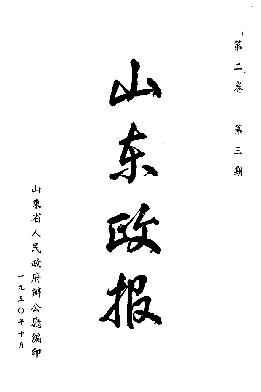 第二卷　第三期
山东政报
山東省人民政府辦公廳編印
一九五〇年十月